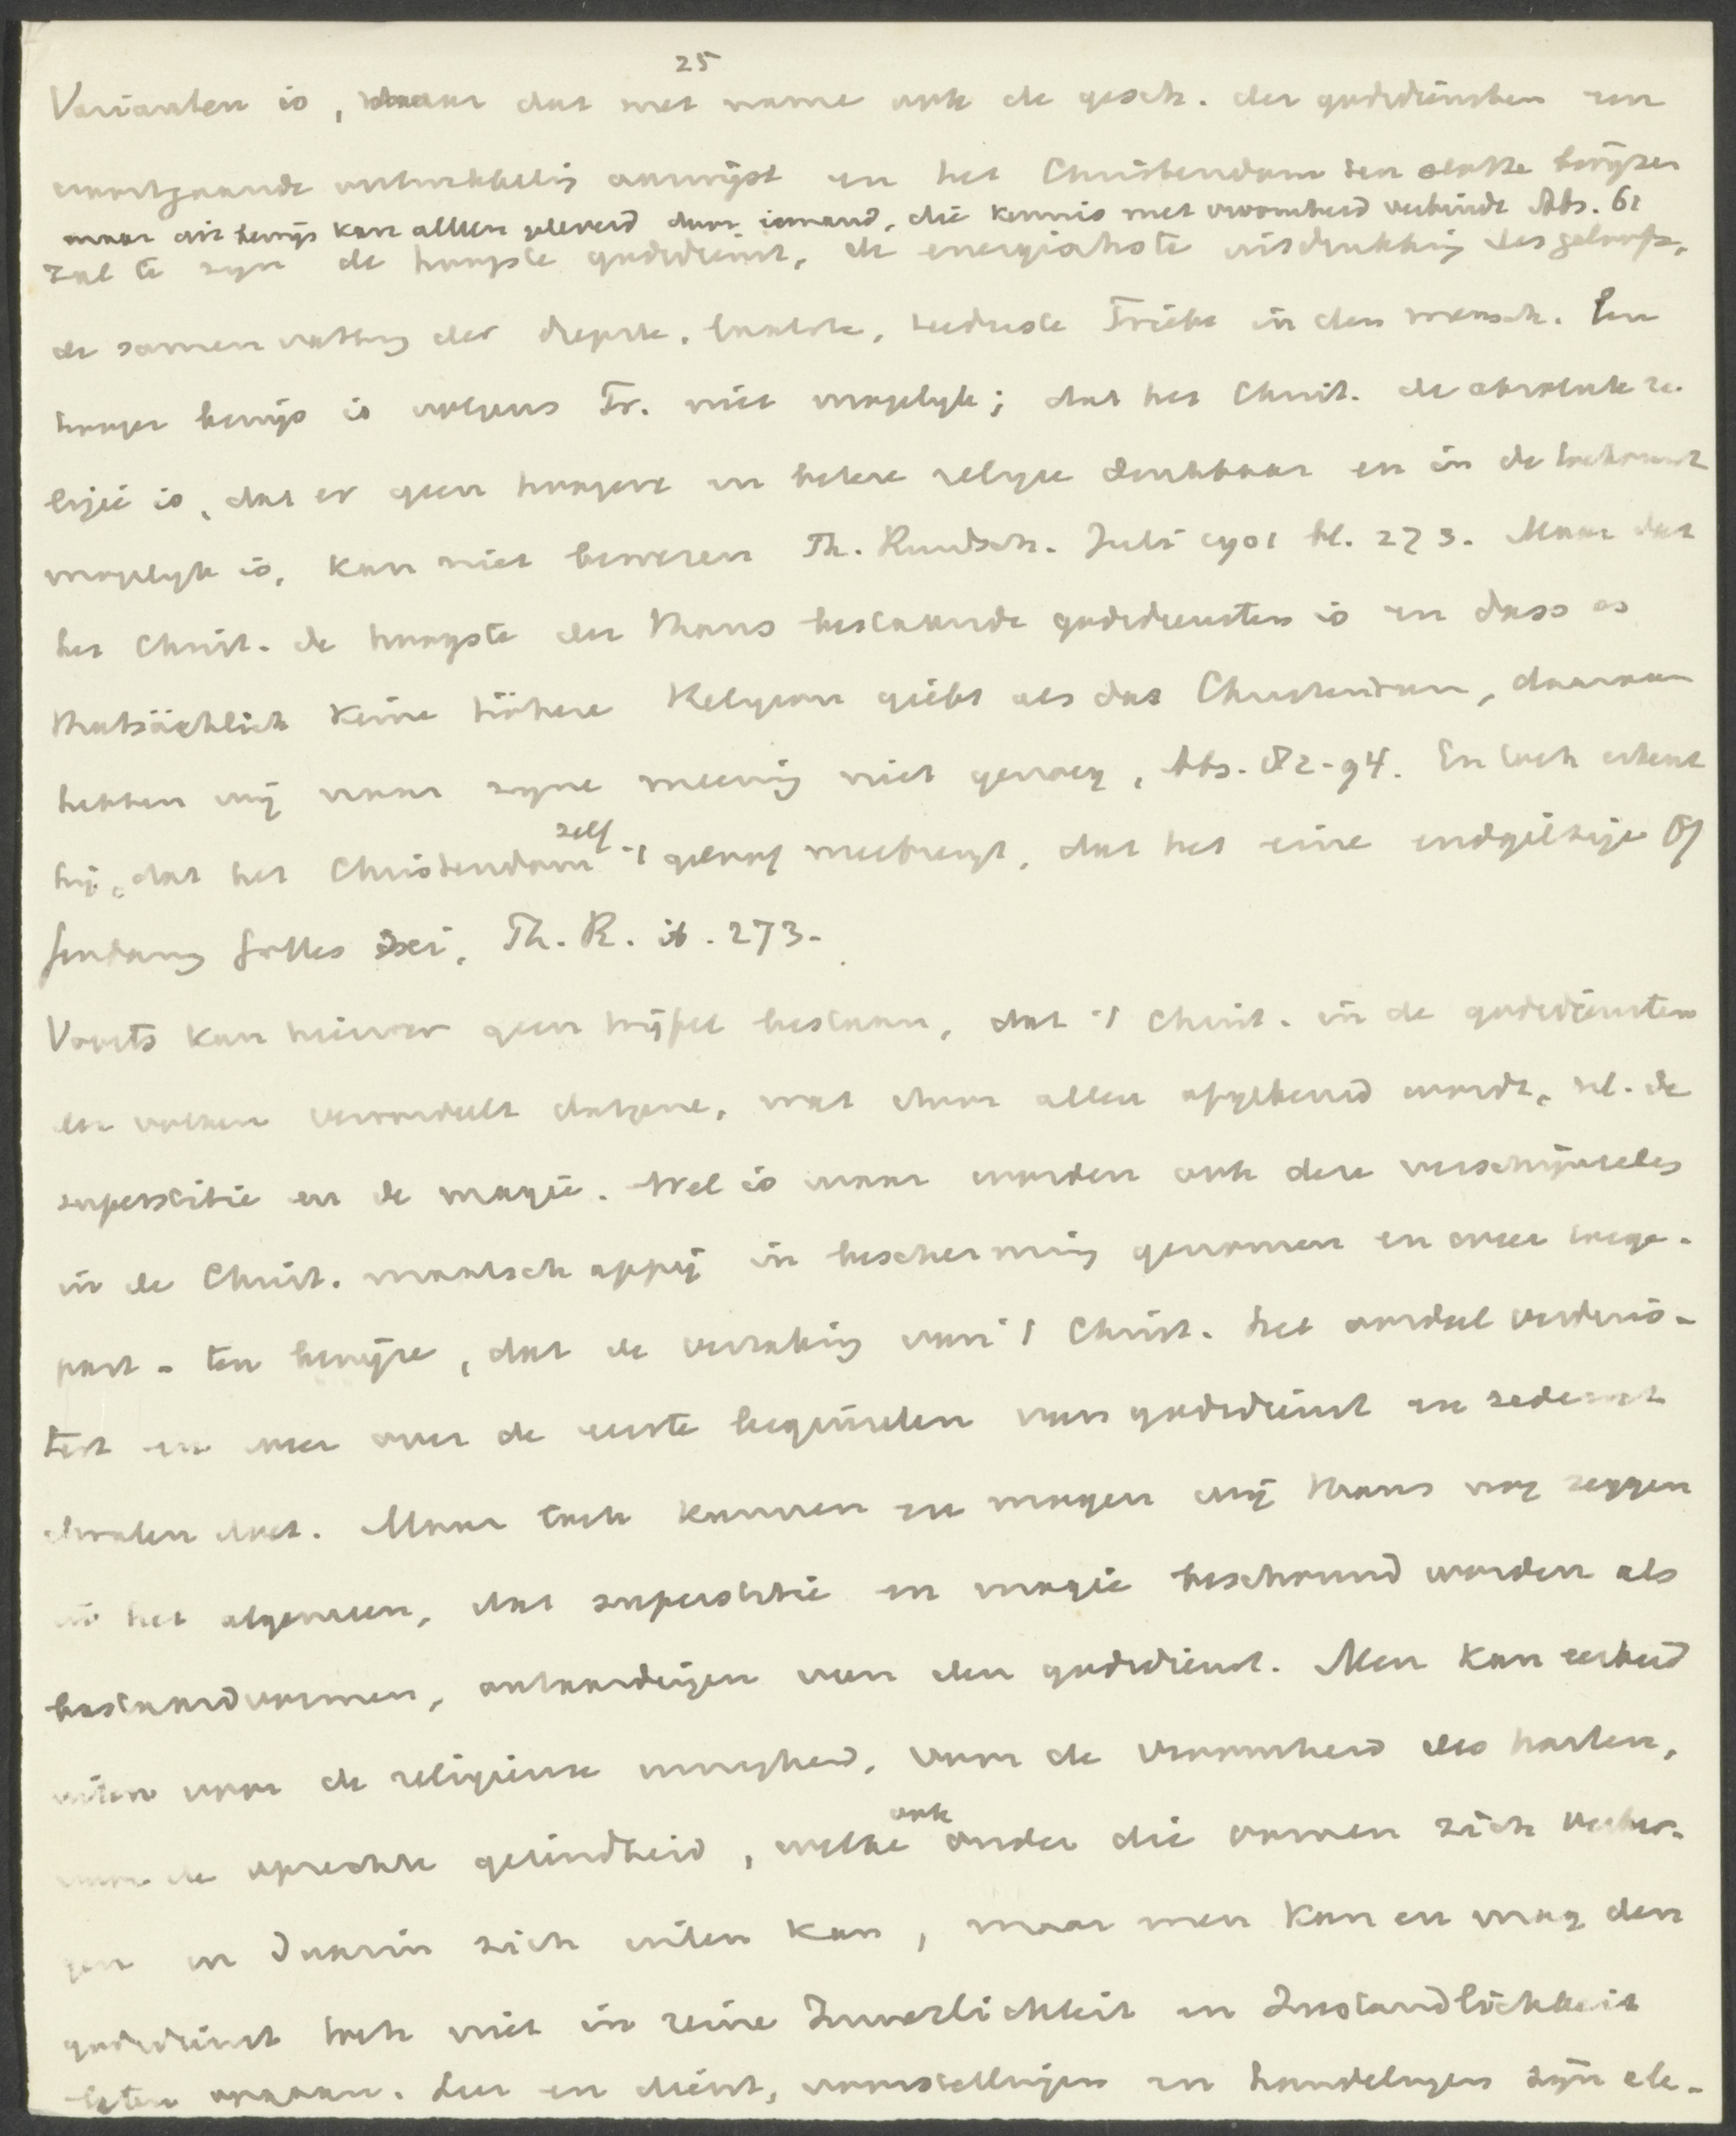 25
Varianten is, maar dat met name ook de gesch. der godsdiensten een
voortgaande ontwikkeling aanwijst en het Christendom ten slotte bewijzen
maar dit bewijs kan alleen geleverd door iemand, die kennis met vroomheid verbindt Abs. 61
zal te zijn de hoogste godsdienst, de energiekste uitdrukking des geloofs,
de samenvatting der diepste, laatste, teederste Triebe in den mensch. Een
hooger bewijs is volgens Tr. niet mogelijk; dat het Christ. de absolute re-
ligie is, dat er geen hoogere en betere religie denkbaar en in de toekomst
mogelijk is, kan niet bewezen Th. Rundsch. Juli 1901 bl. 273. Maar dat
het Christ. de hoogste der thans bestaande godsdiensten is en dass es
thatsächlich keine höhere Religion giebt als das Christentum, daaraan
hebben wij naar zijne meening niet genoeg, Abs. 82-94. En toch erkent
hij, dat het Christendom zelf 't geloof meebrengt, dat het eine endgiltige Of
fenbarung Gottes sei, Th. R. ib. 273.
Voorts kan hierover geen twijfel bestaan, dat 't Christ. in de godsdiensten
der volken veroordeelt datgene, wat door allen afgekeurd wordt, nl. de
superstitie en de magie. Wel is waar worden ook deze verschijnselen
in de Christ. maatschappij in bescherming genomen en weer toege-
past - ten bewijze, dat de verzaking van 't Christ. het oordeel verduis-
tert en weer over de eerste beginselen van godsdienst en zedewet
dwalen doet. Maar toch kunnen en mogen wij thans nog zeggen
in het algemeen, dat superstitie en magie beschouwd worden als
bastaardvormen, ontaardingen van den godsdienst. Men kan eerbied
uiten voor de religieuse innigheid, voor de vroomheid des harten,
voor de oprechte gezindheid, welke ook onder die vormen zich verber-
gen en daarin zich uiten kan, maar men kan en mag den
godsdienst toch niet in reine Innerlichkeit en Zustandlichkeit
laten opgaan. Leer en dienst, voorstellingen en handelingen zijn ele-